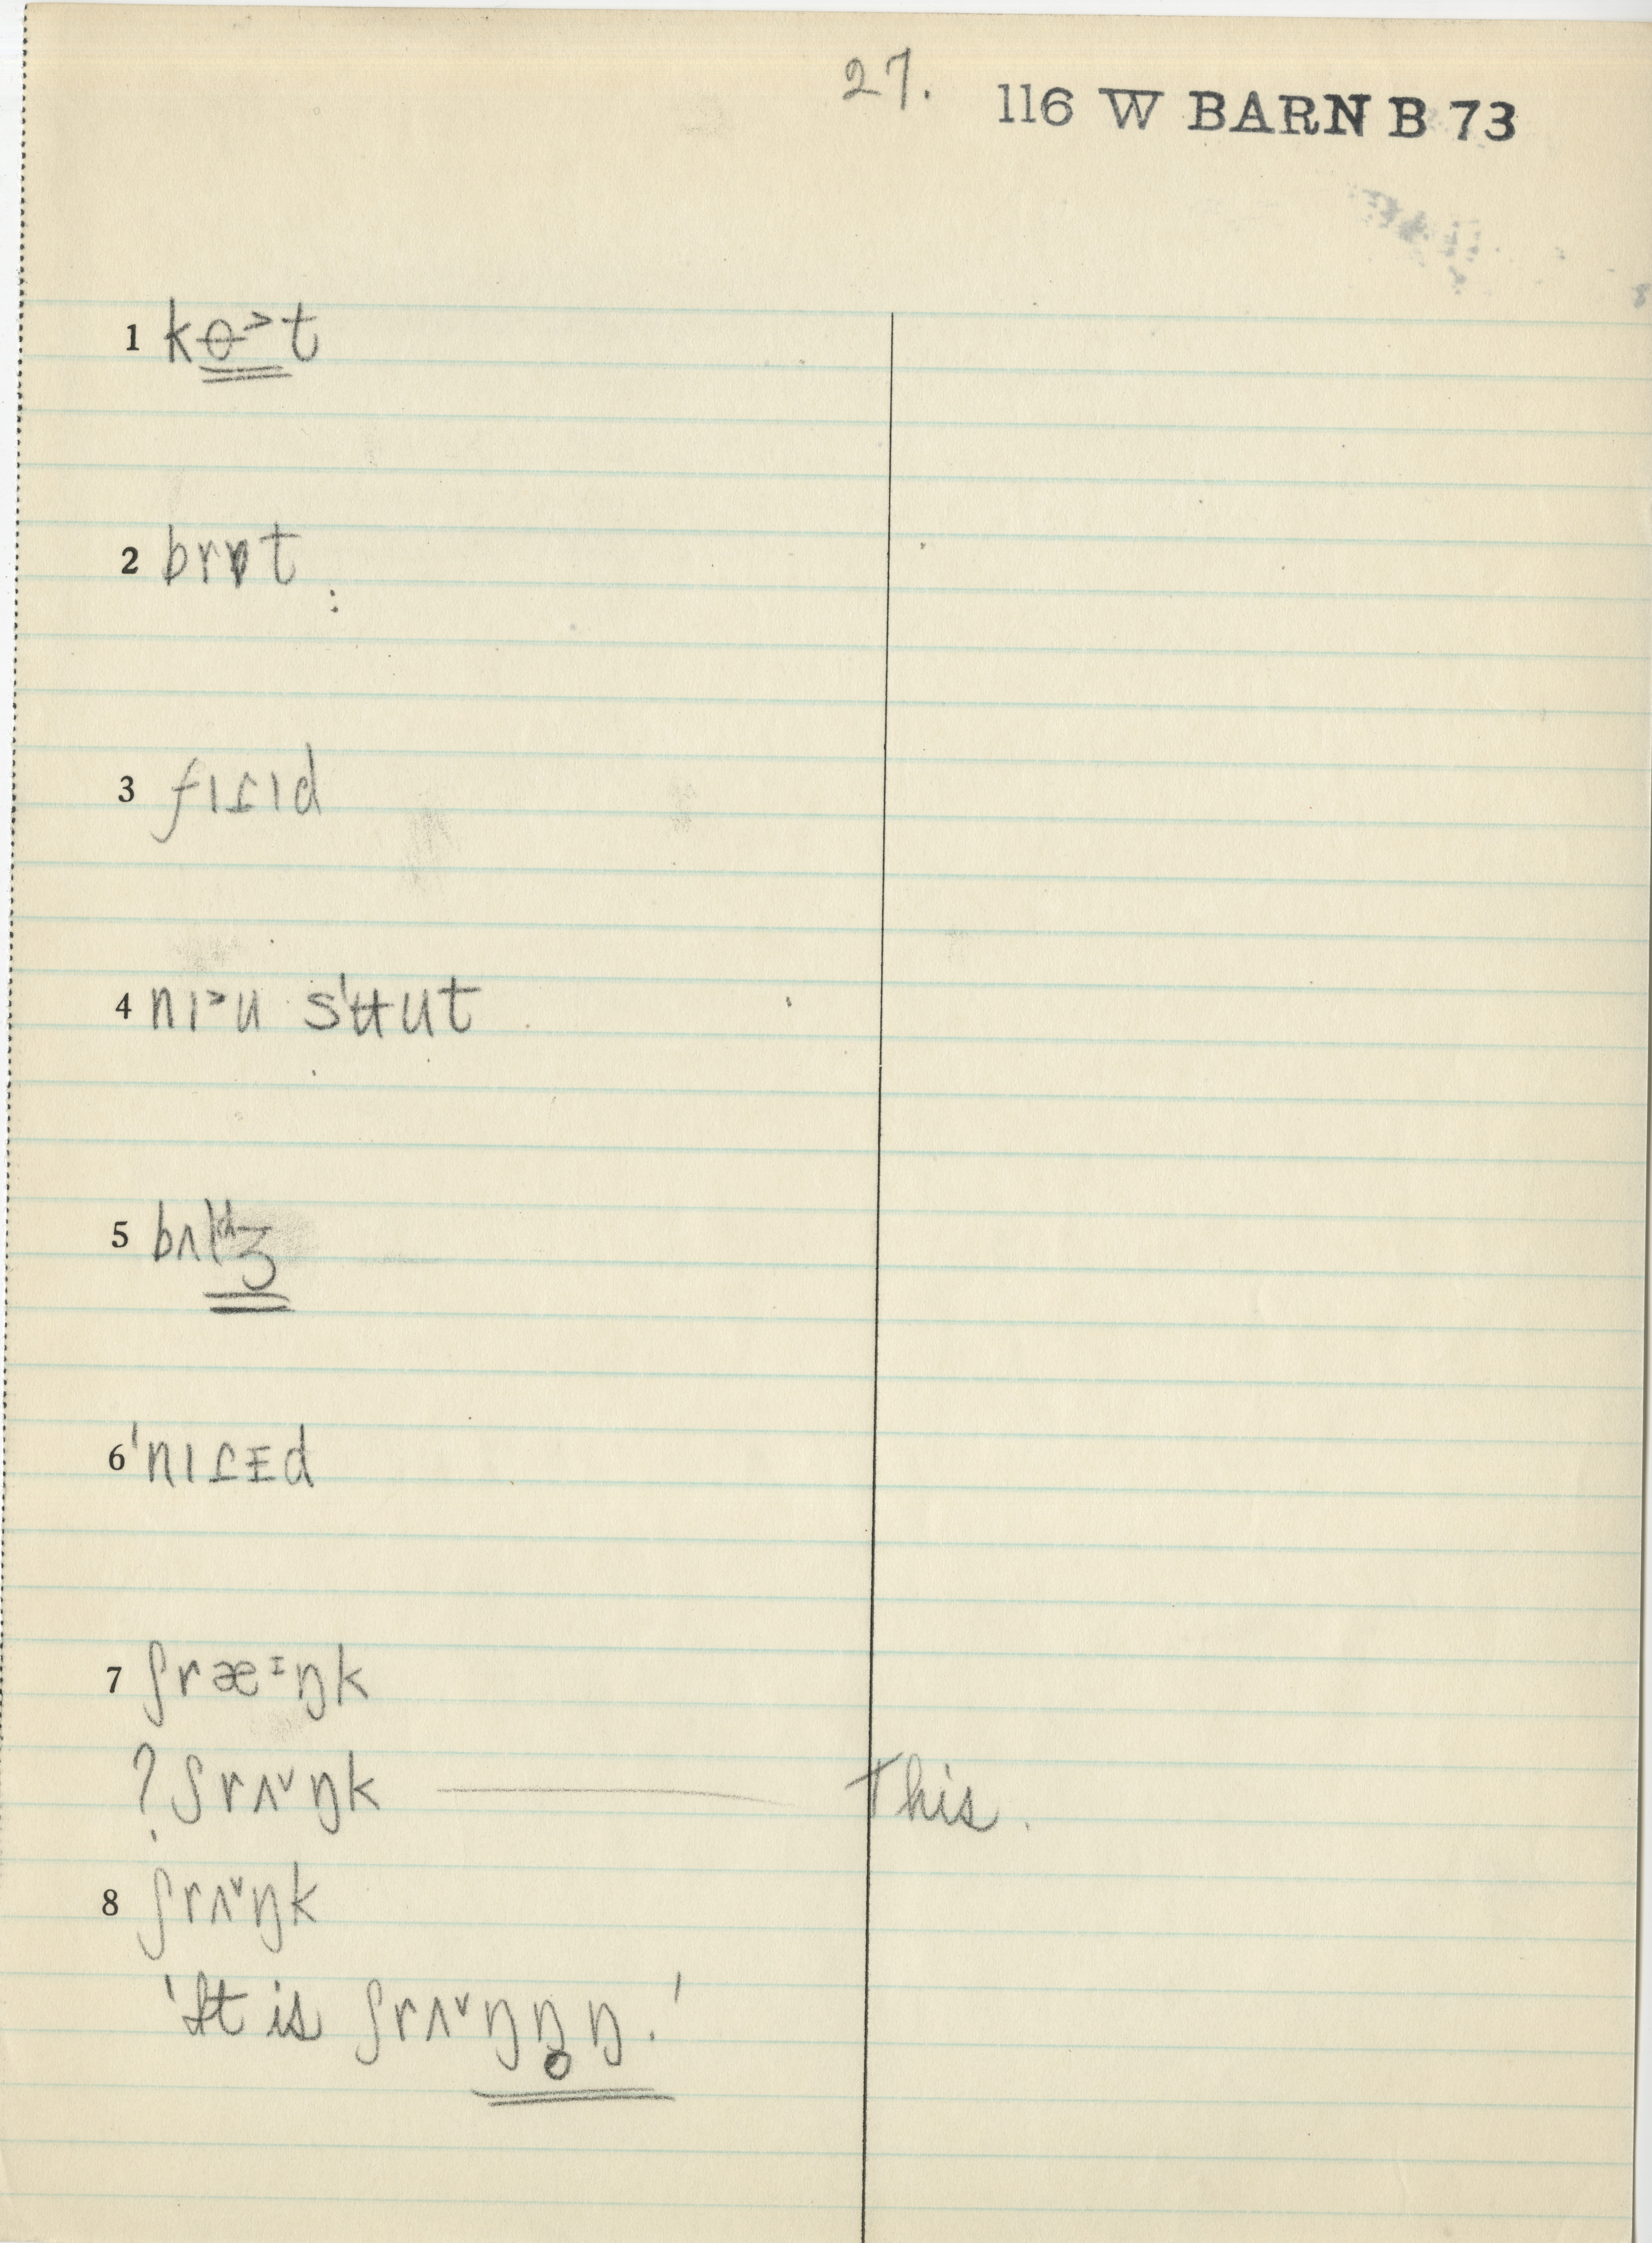 27. 116 W BARN B 73
1 kɵ˃t
2 brɒt
3 fɪɾɪd
4 nɪ˃u sʹʉut
6 ˈnɪɾᵻd
7 ʃræᶦŋk
? ʃrʌ˅ŋk — This.
8 ʃrʌ˅ŋk
'It is ʃrʌ˅ŋŋ̥ŋ.'